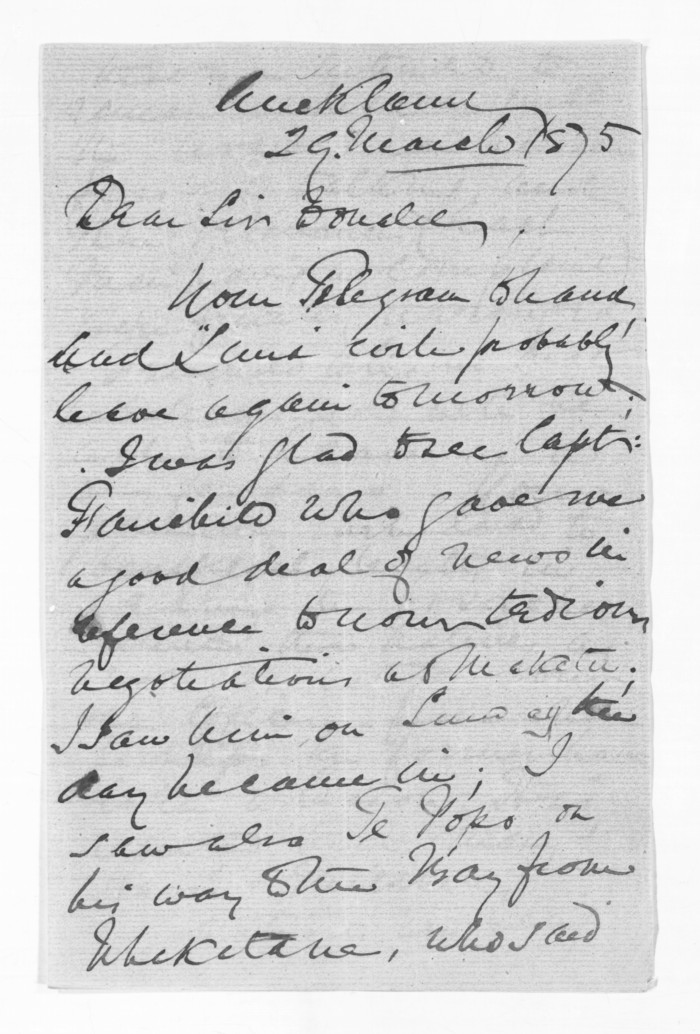 Auckland
29. March 1875
Dear Sir Donald,
Your Telegram to hand
and "Luna" will probably
leave again tomorrow.
I was glad to see Capt:
Fairchild who gave me
a good deal of news in
reference to your tedious
negotiations at Maketu.
I saw him on Sunday the
day he came in; I
saw also Te Popo on
his way to the Bay from
, who said